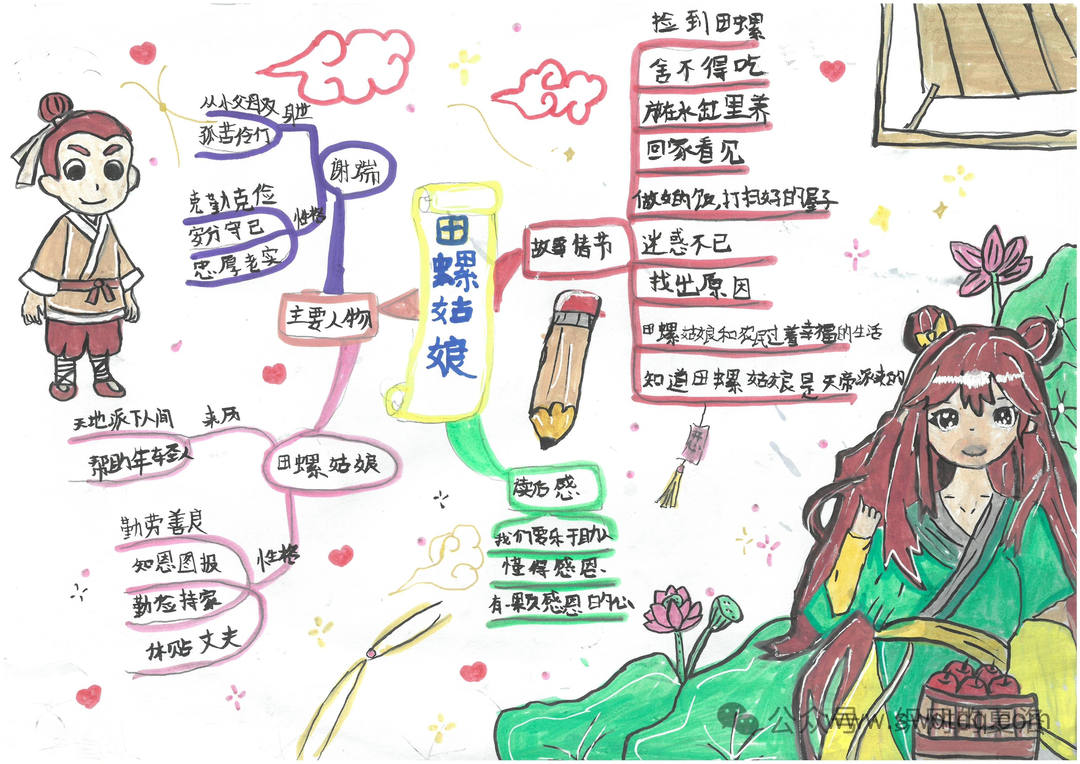 田螺姑娘
主要人物
谢端
身世
从小父母双
孤苦伶仃
性格
克勤克俭
安分守己
忠厚老实
田螺姑娘
来历
天地派下人间
帮助年轻人
性格
勤劳善良
知恩图报
勤俭持家
体贴丈夫
故事情节
捡到田螺
舍不得吃
放在水缸里养
回家看见
做好的饭,打扫好的屋子
迷惑不已
找出原因
田螺姑娘和农民过着幸福的生活
知道田螺姑娘是天帝派来的
读后感
我们要乐于助人
懂得感恩、
有一颗感恩的心
公众号